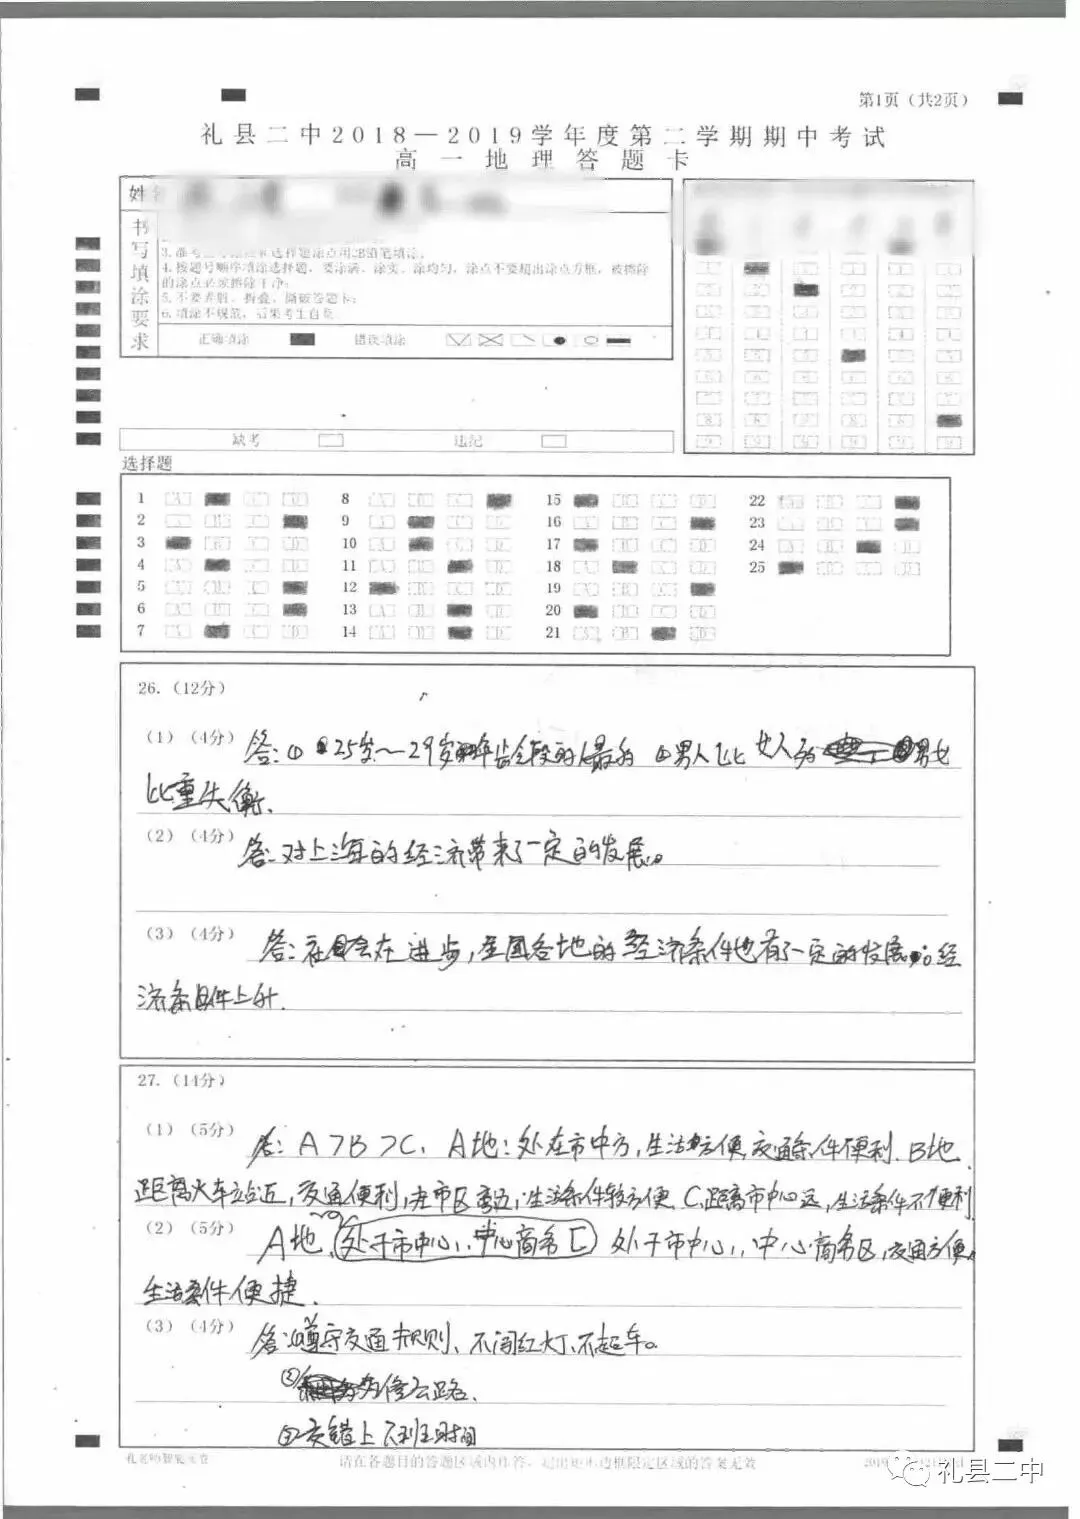 第1页（共2页）
礼县二中2018—2019学年度第二学期期中考试
高一地理答题卡
姓
书写填涂要求
4.按题号顺序填涂选择题，要涂满、涂实、涂均匀，涂点不要超出涂点方框，被擦除
的涂点必须擦除干净;
5.不要弄脏、折叠、撕破答题卡;
6.填涂不规范，后果考生自负
正确填涂 错误填涂
缺考 违纪
选择题
1 8 15 22
2 9 16 23
3 10 17 24
4 11 18 25
5 12 19
6 13 20
7 14 21
26.（12分）
(1) (4分) 答：① 25岁～29岁年龄段的最多 ②男人比女人多 男女
比重失衡.
(2) (4分) 答：对上海的经济带来了一定的发展。
(3) (4分) 答：社会在进步，全国各地的经济条件也有了一定的发展 经
济条件上升.
27.（14分）
(1) (5分) 答：A>B>C. A地：处在市中方，生活方便，交通条件便利. B地
距离火车站近，交通便利，生活条件较方便 C.距离市中心远，生活条件不便利
(2) (5分) A地，处于市中心，中心商务区 处于市中心，中心商务区，交通方便，
生活条件便捷.
(3) (4分) 答：①遵守交通规则、不闯红灯、不超车。
② 多修公路.
③交错上下班时间
请在各题目的答题区域内作答，超出矩形边框限定区域的答案无效
礼县二中